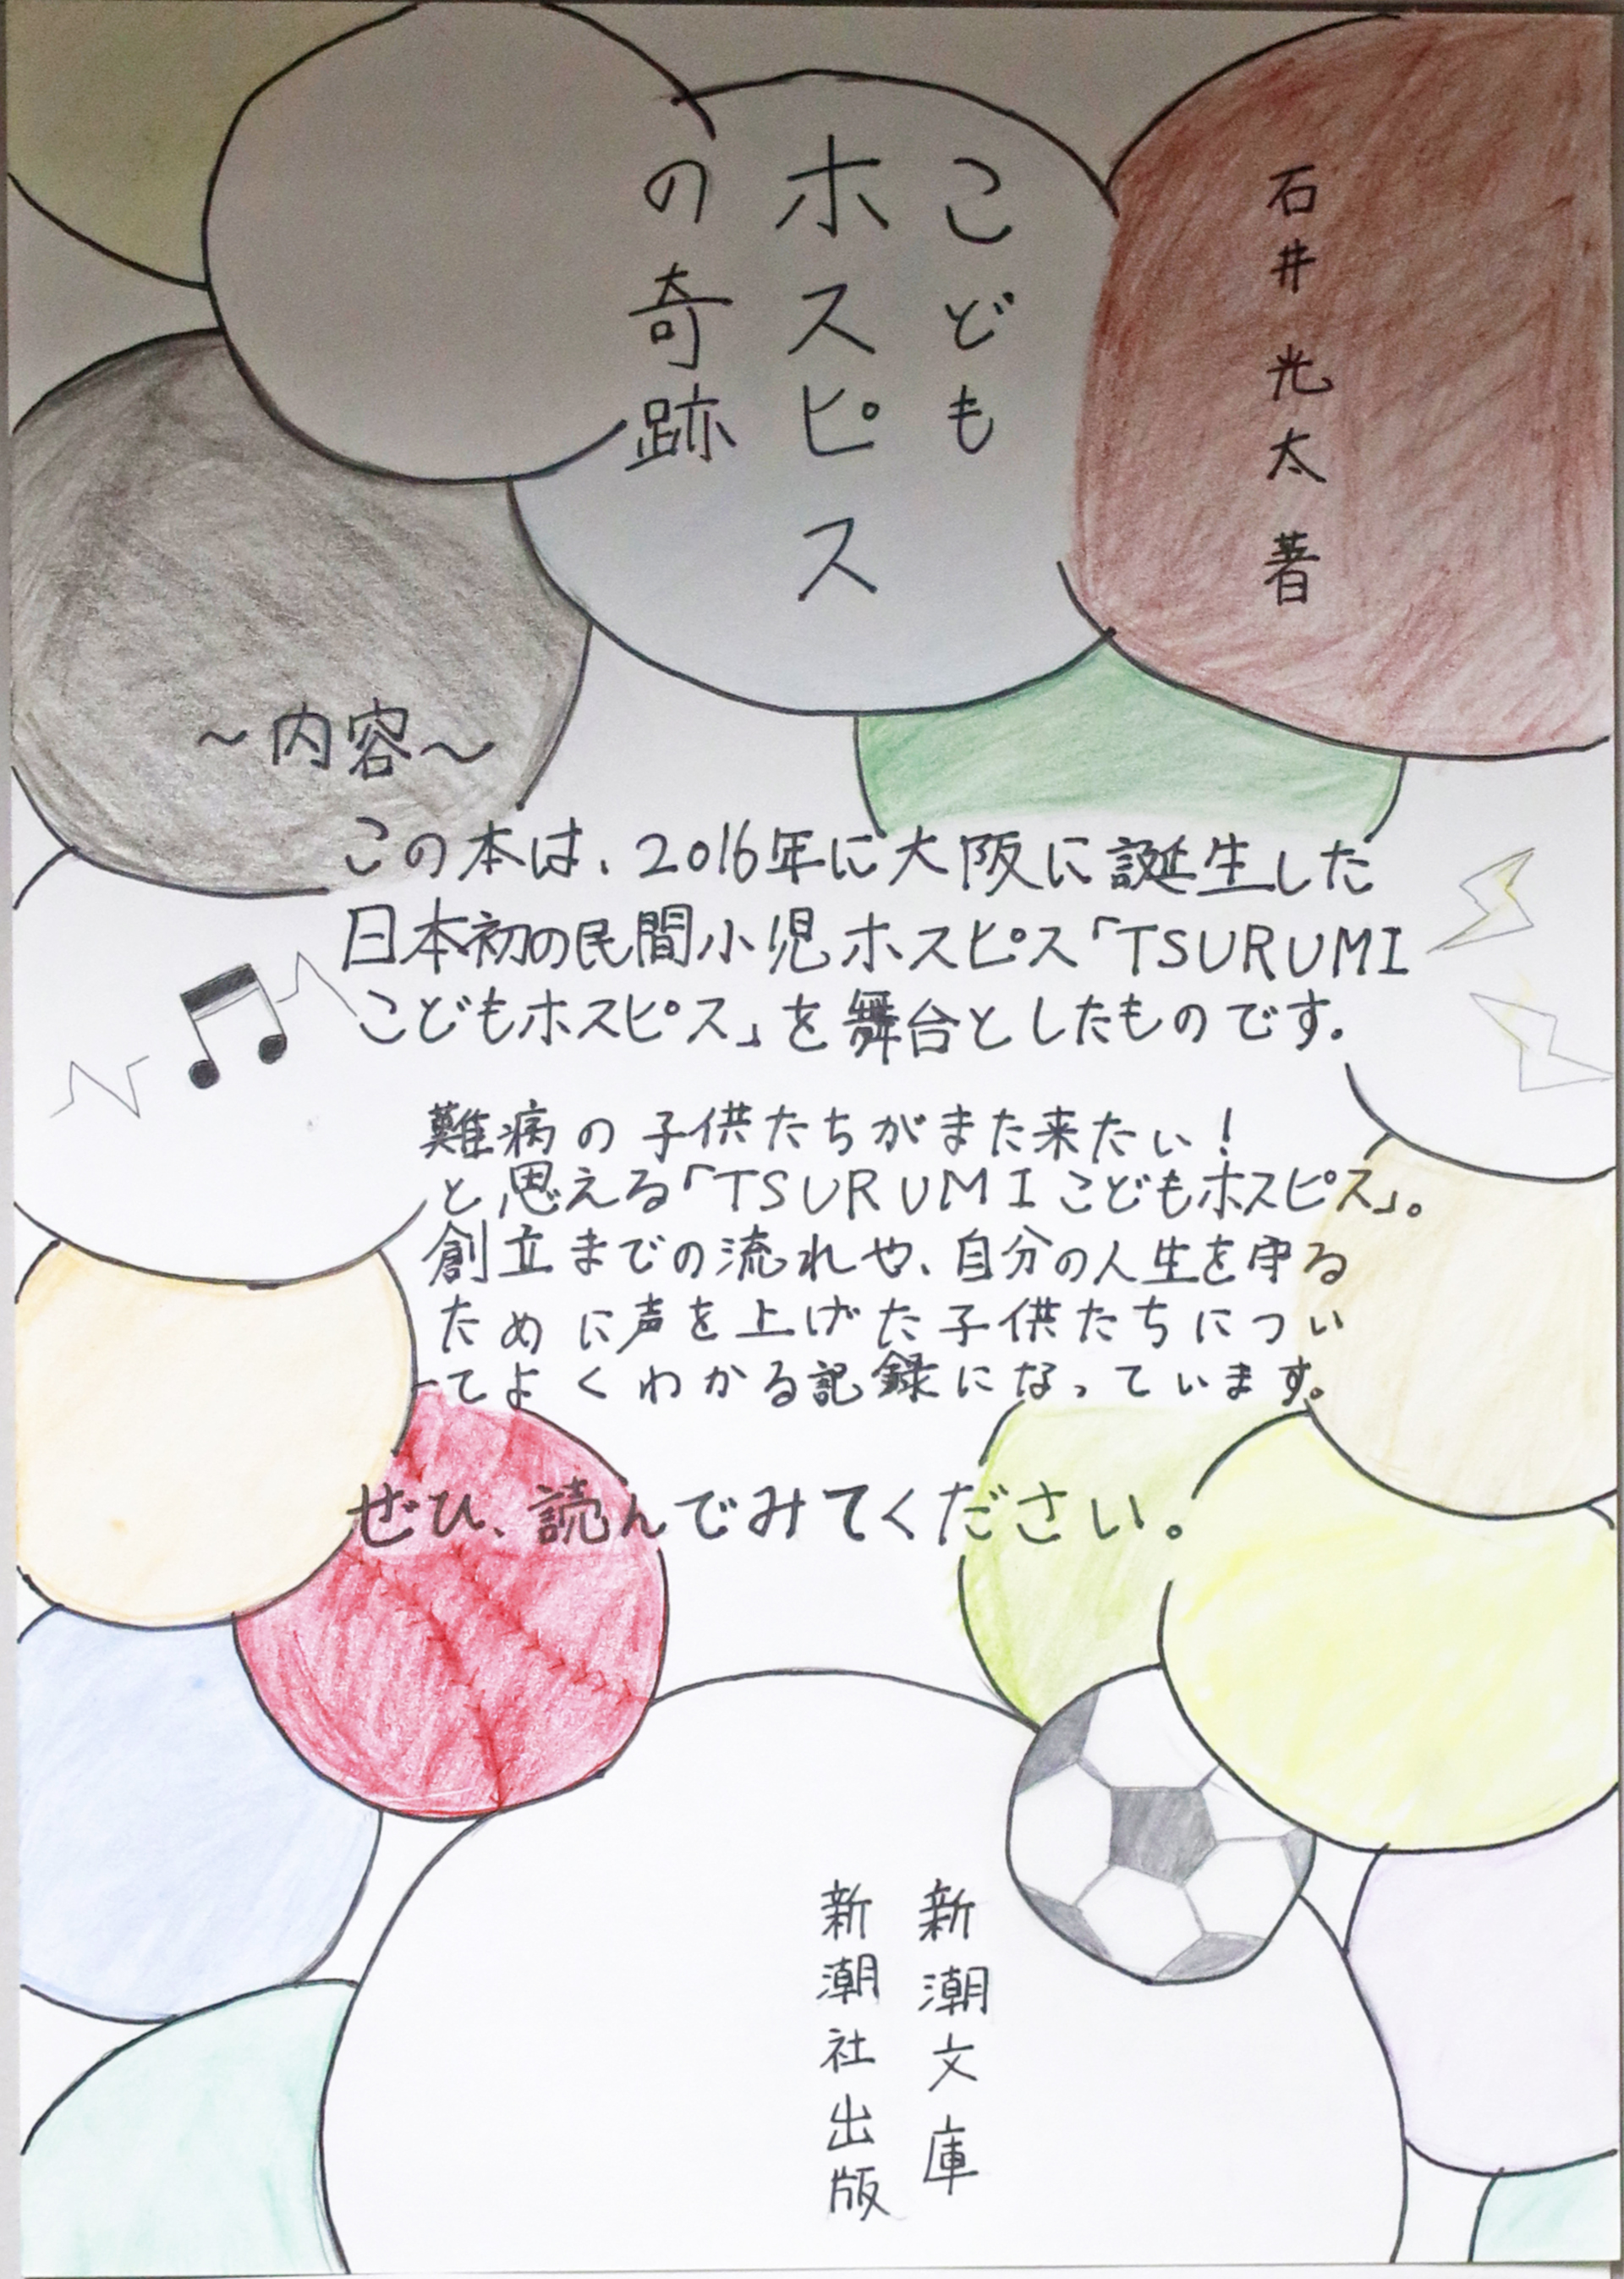 石井光太 著
こども
ホスピス
の奇跡
～内容～
この本は、2016年に大阪に誕生した
日本初の民間小児ホスピス「TSURUMI
こどもホスピス」を舞台としたものです。
難病の子供たちがまた来たい！
と思える「TSURUMIこどもホスピス」。
創立までの流れや、自分の人生を守る
ために声を上げた子供たちについ
てよくわかる記録になっています。
ぜひ、読んでみてください。
新潮文庫
新潮社出版